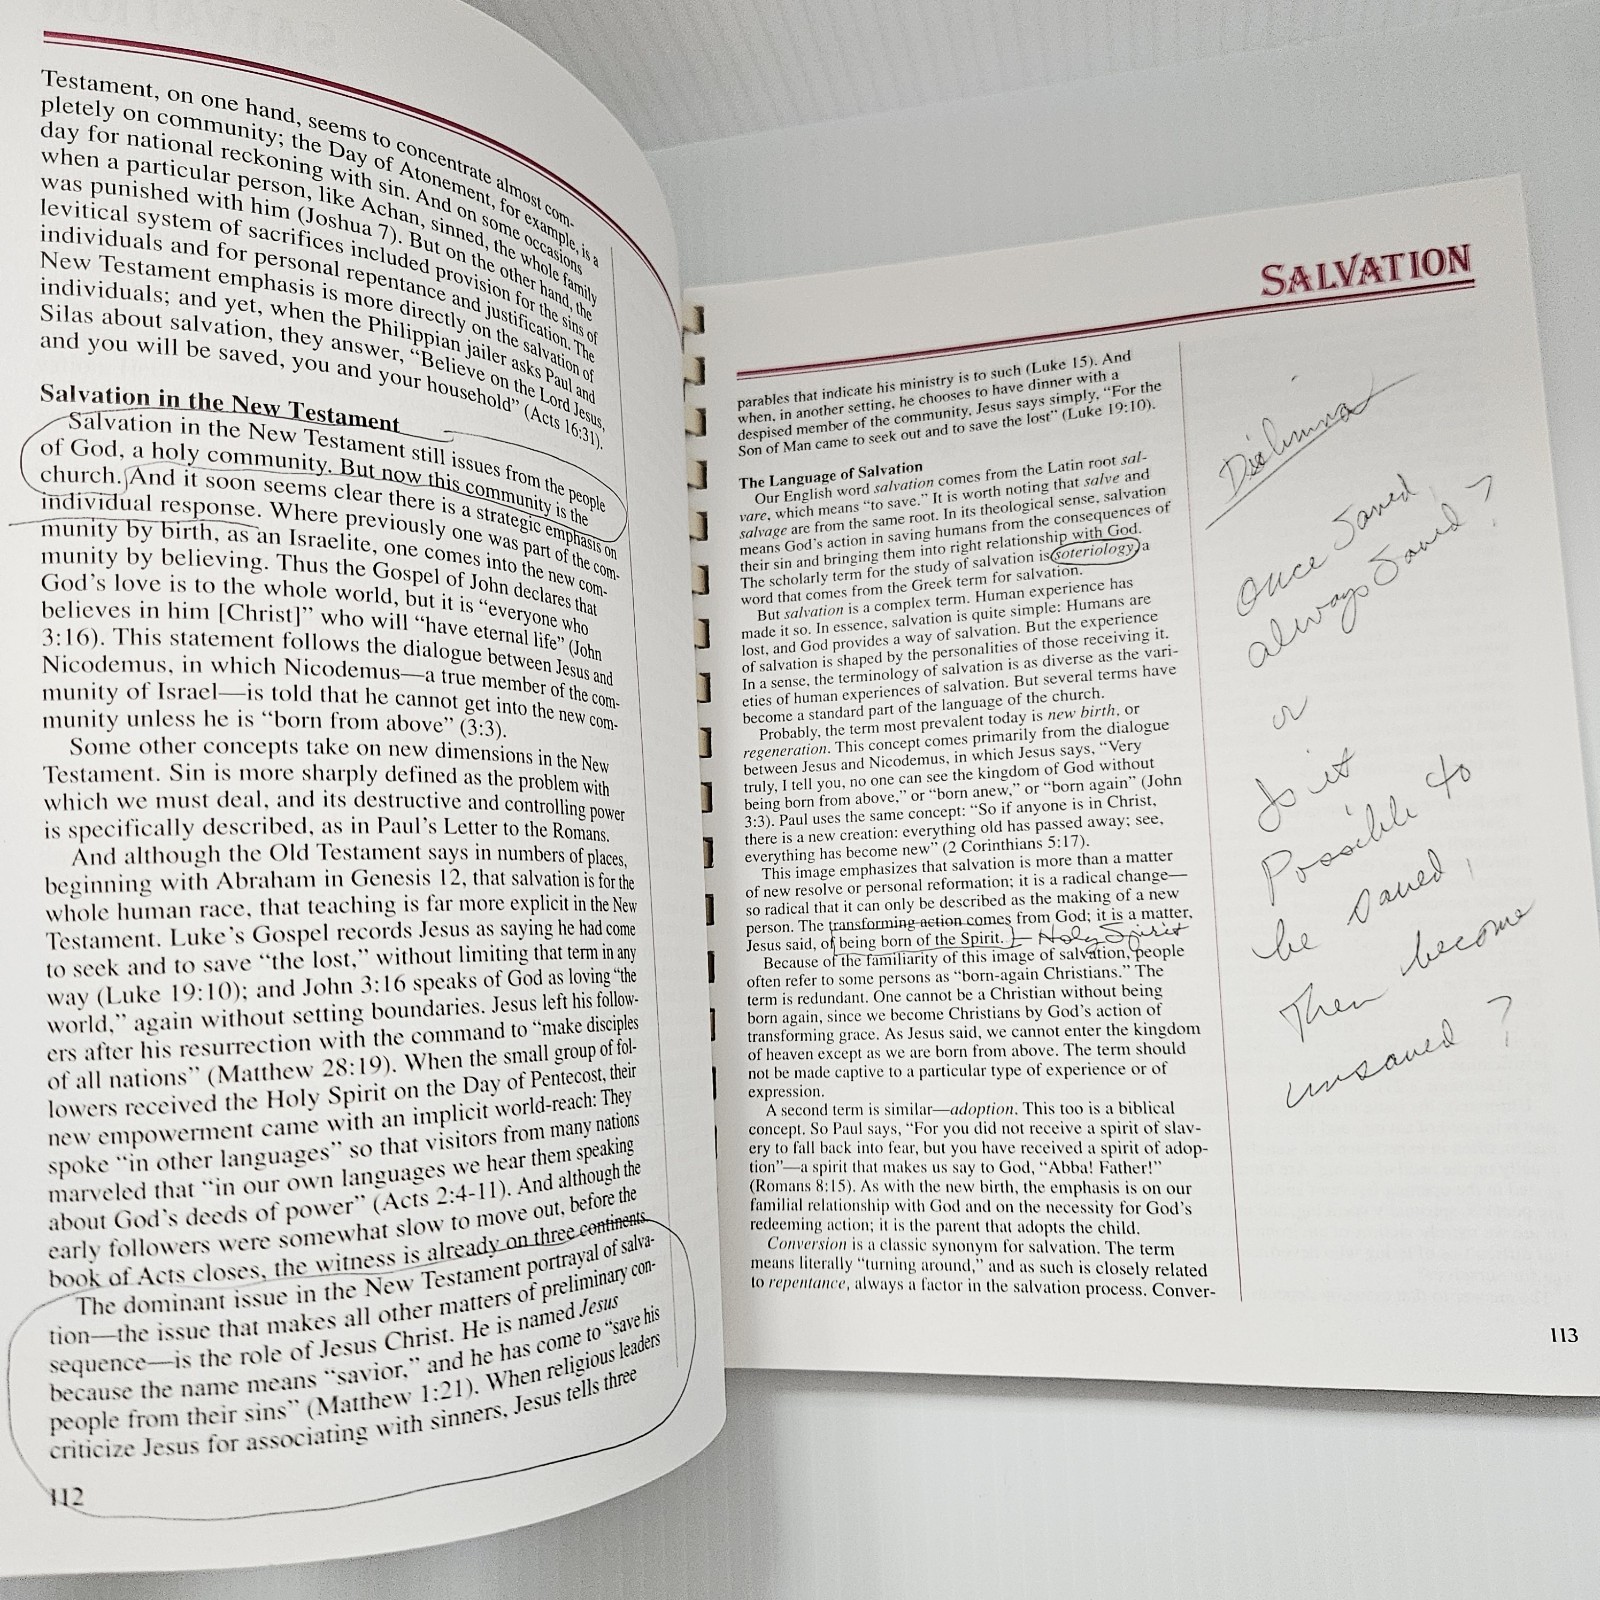 Testament, on one hand, seems to concentrate almost com-
pletely on community; the Day of Atonement, for example, is a
day for national reckoning with sin. And on some occasions
when a particular person, like Achan, sinned, the whole family
was punished with him (Joshua 7). But on the other hand, the
levitical system of sacrifices included provision for the sins of
individuals and for personal repentance and justification. The
New Testament emphasis is more directly on the salvation of
individuals; and yet, when the Philippian jailer asks Paul and
Silas about salvation, they answer, “Believe on the Lord Jesus,
and you will be saved, you and your household” (Acts 16:31).
Salvation in the New Testament
Salvation in the New Testament still issues from the people
of God, a holy community. But now this community is the
church. And it soon seems clear there is a strategic emphasis on
individual response. Where previously one was part of the com-
munity by birth, as an Israelite, one comes into the new com-
munity by believing. Thus the Gospel of John declares that
God’s love is to the whole world, but it is “everyone who
believes in him [Christ]” who will “have eternal life” (John
3:16). This statement follows the dialogue between Jesus and
Nicodemus, in which Nicodemus—a true member of the com-
munity of Israel—is told that he cannot get into the new com-
munity unless he is “born from above” (3:3).
Some other concepts take on new dimensions in the New
Testament. Sin is more sharply defined as the problem with
which we must deal, and its destructive and controlling power
is specifically described, as in Paul’s Letter to the Romans.
And although the Old Testament says in numbers of places,
beginning with Abraham in Genesis 12, that salvation is for the
whole human race, that teaching is far more explicit in the New
Testament. Luke’s Gospel records Jesus as saying he had come
to seek and to save “the lost,” without limiting that term in any
way (Luke 19:10); and John 3:16 speaks of God as loving “the
world,” again without setting boundaries. Jesus left his follow-
ers after his resurrection with the command to “make disciples
of all nations” (Matthew 28:19). When the small group of fol-
lowers received the Holy Spirit on the Day of Pentecost, their
new empowerment came with an implicit world-reach: They
spoke “in other languages” so that visitors from many nations
marveled that “in our own languages we hear them speaking
about God’s deeds of power” (Acts 2:4-11). And although the
early followers were somewhat slow to move out, before the
book of Acts closes, the witness is already on three continents.
The dominant issue in the New Testament portrayal of salva-
tion—the issue that makes all other matters of preliminary con-
sequence—is the role of Jesus Christ. He is named Jesus
because the name means “savior,” and he has come to “save his
people from their sins” (Matthew 1:21). When religious leaders
criticize Jesus for associating with sinners, Jesus tells three
112
SALVATION
parables that indicate his ministry is to such (Luke 15). And
when, in another setting, he chooses to have dinner with a
despised member of the community, Jesus says simply, “For the
Son of Man came to seek out and to save the lost” (Luke 19:10).
The Language of Salvation
Our English word salvation comes from the Latin root sal-
vare, which means “to save.” It is worth noting that salve and
salvage are from the same root. In its theological sense, salvation
means God’s action in saving humans from the consequences of
their sin and bringing them into right relationship with God.
The scholarly term for the study of salvation is soteriology, a
word that comes from the Greek term for salvation.
But salvation is a complex term. Human experience has
made it so. In essence, salvation is quite simple: Humans are
lost, and God provides a way of salvation. But the experience
of salvation is shaped by the personalities of those receiving it.
In a sense, the terminology of salvation is as diverse as the vari-
eties of human experiences of salvation. But several terms have
become a standard part of the language of the church.
Probably, the term most prevalent today is new birth, or
regeneration. This concept comes primarily from the dialogue
between Jesus and Nicodemus, in which Jesus says, “Very
truly, I tell you, no one can see the kingdom of God without
being born from above,” or “born anew,” or “born again” (John
3:3). Paul uses the same concept: “So if anyone is in Christ,
there is a new creation: everything old has passed away; see,
everything has become new” (2 Corinthians 5:17).
This image emphasizes that salvation is more than a matter
of new resolve or personal reformation; it is a radical change—
so radical that it can only be described as the making of a new
person. The transforming action comes from God; it is a matter,
Jesus said, of being born of the Spirit. Holy Spirit
Because of the familiarity of this image of salvation, people
often refer to some persons as “born-again Christians.” The
term is redundant. One cannot be a Christian without being
born again, since we become Christians by God’s action of
transforming grace. As Jesus said, we cannot enter the kingdom
of heaven except as we are born from above. The term should
not be made captive to a particular type of experience or of
expression.
A second term is similar—adoption. This too is a biblical
concept. So Paul says, “For you did not receive a spirit of slav-
ery to fall back into fear, but you have received a spirit of adop-
tion”—a spirit that makes us say to God, “Abba! Father!”
(Romans 8:15). As with the new birth, the emphasis is on our
familial relationship with God and on the necessity for God’s
redeeming action; it is the parent that adopts the child.
Conversion is a classic synonym for salvation. The term
means literally “turning around,” and as such is closely related
to repentance, always a factor in the salvation process. Conver-
Once Saved,
always Saved?
or
Is it
Possible to
be saved,
Then become
unsaved?
113